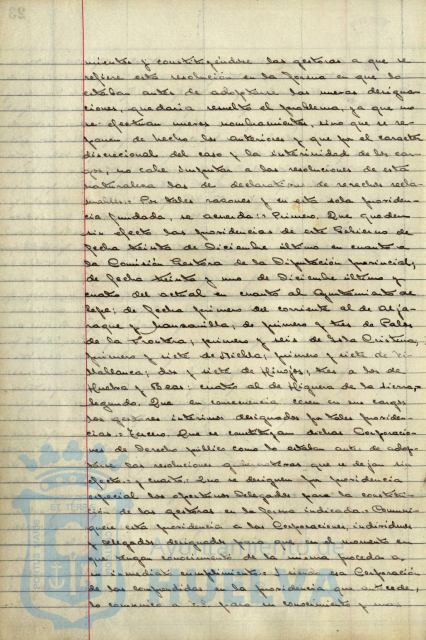 mientos y constituyendose las gestoras a que se
refiere esta resolución en la forma en que lo
estaban antes de adoptarse las nuevas designa-
ciones, quedaria resuelto el problema, ya que no
se efectuan nuevos nombramientos, sino que se re-
ponen de hecho los anteriores y que por el caracter
discrecional del caso y la interinidad de los car-
gos, no cabe imputar a las resoluciones de esta
naturaleza las de declaratorias de derechos recla-
mables: Por tales razones y en esta sola providen-
cia fundada, se acuerda: Primero. Que queden
sin efecto las providencias de este Gobierno de
fecha treinta de Diciembre último en cuanto a
la Comisión Gestora de la Diputación provincial;
de fecha treinta y uno de Diciembre último y
cuatro del actual en cuanto al Ayuntamiento de
Lepe; de fecha primero del corriente al de Alja-
raque y Manzanilla; de primero y tres de Palos
de la Frontera; primero y seis de Isla Cristina;
primero y siete de Niebla; primero y siete de Vi-
llablanca; dos y siete de Hinojos; tres a los de
Huelva y Beas; cuatro al de Higuera de la Sierra,
segundo. Que en consecuencia cesen en sus cargos
los gestores interinos designados por tales providen-
cias. Tercero. Que se constituyan dichas Corporacio-
nes de Derecho público como lo estaban antes de adop-
tarse las resoluciones que se dejan sin
efecto; y cuarto: Que se designen por providencia
especial los oportunos Delegados para la constitu-
ción de las gestoras en la forma indicada. Comuni-
quese esta providencia a las Corporaciones, individuos
y delegados designados para que en el momento en
que tengan conocimiento de la misma procedan a
su inmediato cumplimiento. Y siendo esa Corporación
de las comprendidas en la providencia que antecede,
lo comunico a V.S. para su conocimiento y mas